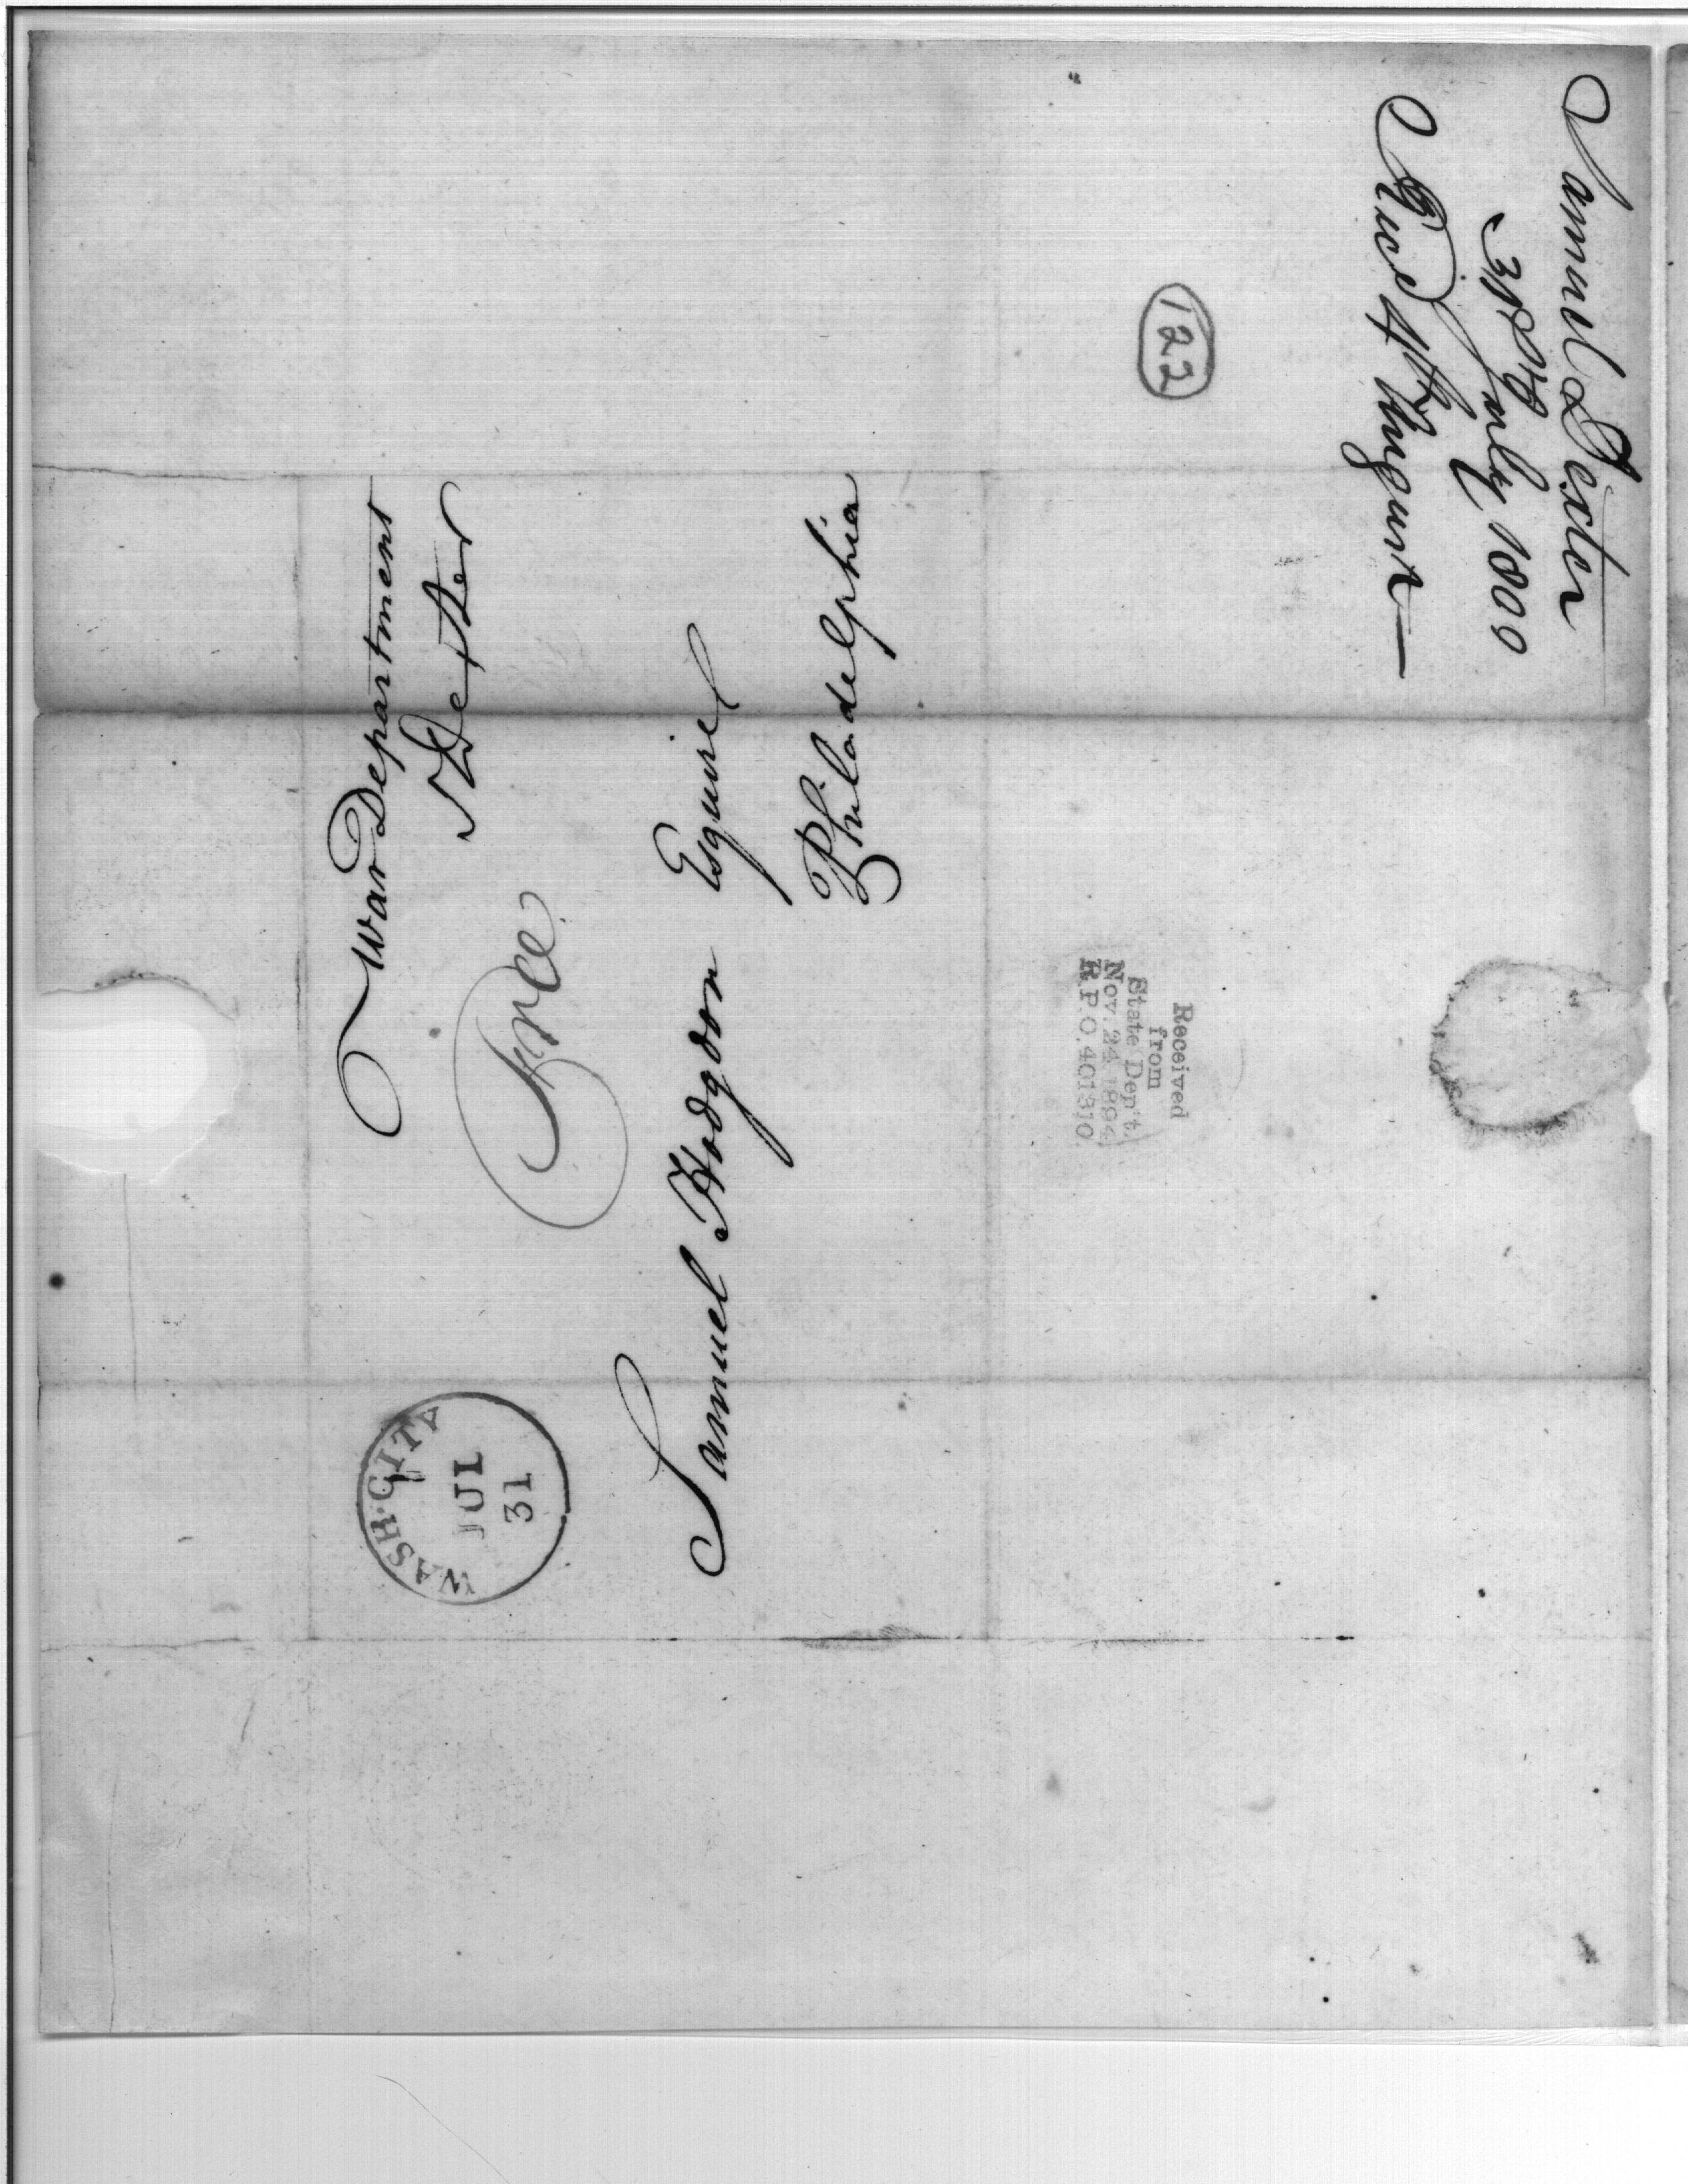 Samuel Dexter
31st July 1800
Recd 4th August
122
War Department
S Dexter
Free
Samuel Hodgdon Esquire
Philadelphia
WASH. CITY
JUL
31
Received
from
State Dep't.
Nov. 24 1894
R.P.O. 401310